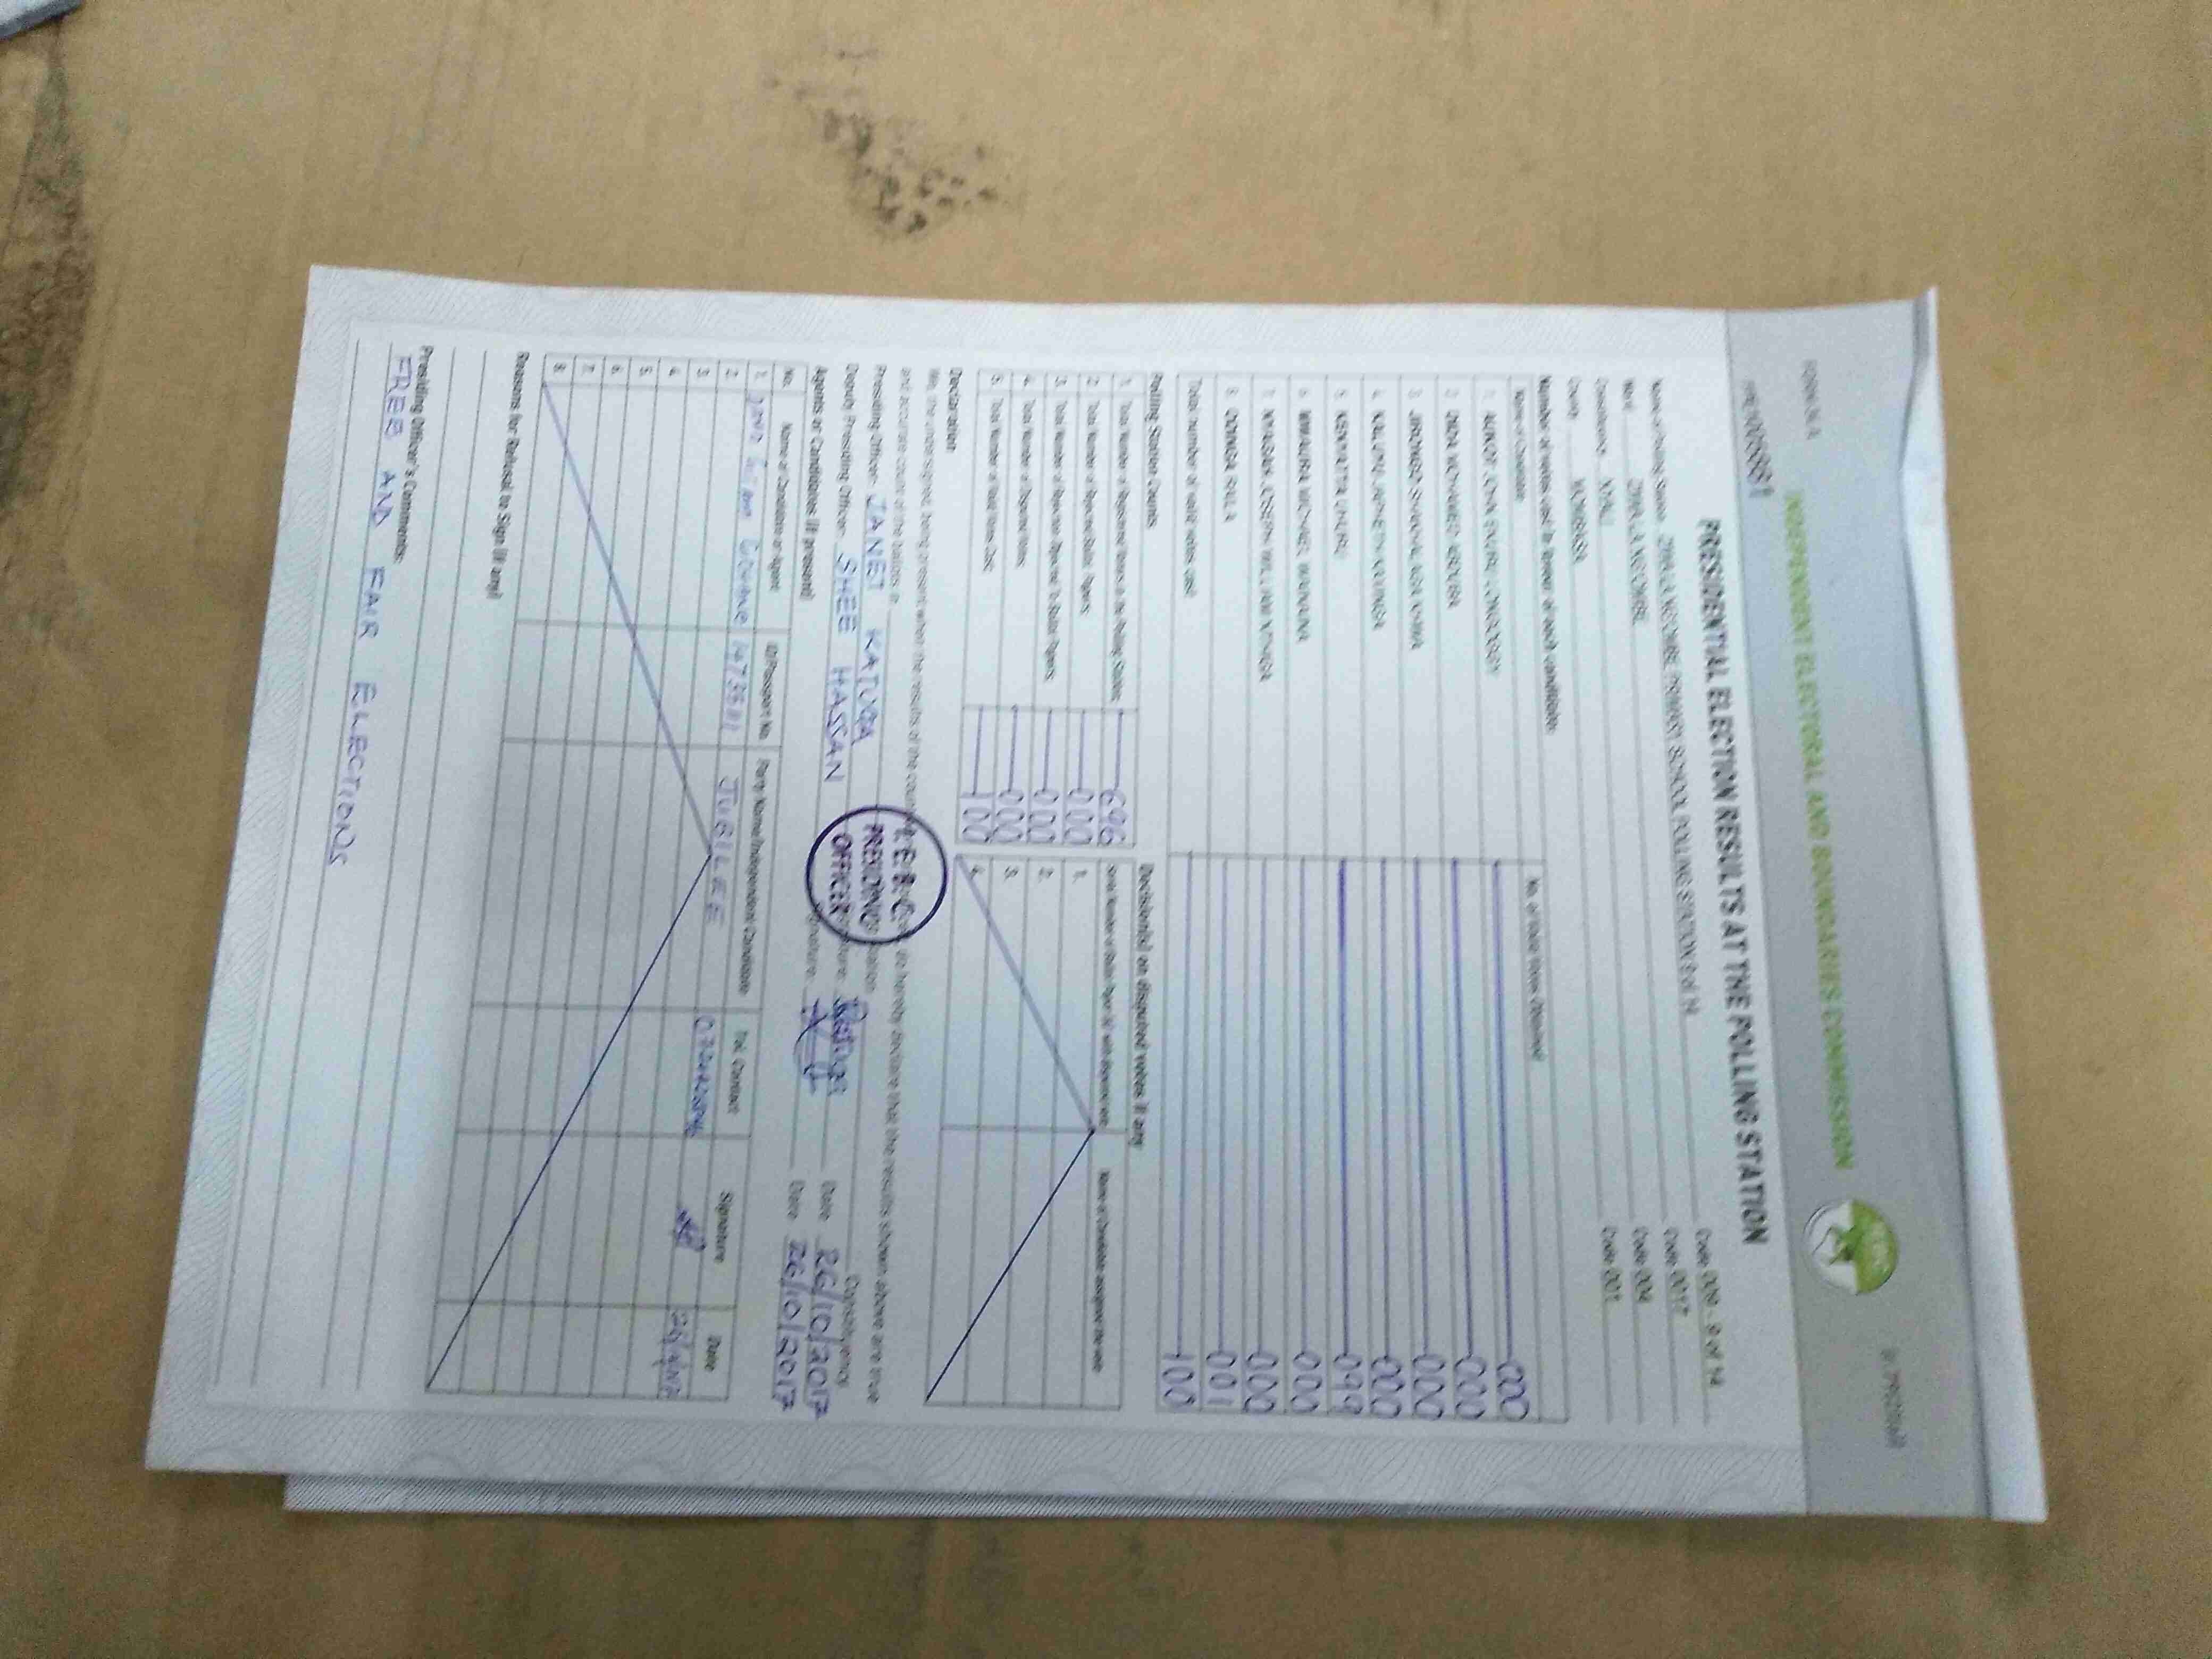 FORM 34A
INDEPENDENT ELECTORAL AND BOUNDARIES COMMISSION
PRESIDENTIAL ELECTION RESULTS AT THE POLLING STATION
Name of Polling Station ZIWA LA NGOMBE PRIMARY SCHOOL POLLING STATION 9 of 14 Code 009 - 9 of 14
Ward ZIWA LA NGOMBE Code 0017
Constituency NYALI Code 004
County MOMBASA Code 001
Number of votes cast in favour of each candidate:
Name of Candidate No. of Valid Votes Obtained
1. AUKOT JOHN EKURU LONGOGGY 000
2. DIDA MOHAMED ABDUBA 000
3. JIRONGO SHAKHALAGA KHWA 000
4. KALUYU JAPHETH KAVINGA 000
5. KENYATTA UHURU 099
6. MWAURA MICHAEL WAINAINA 000
7. NYAGAH JOSEPH WILLIAM NTHIGA 000
8. ODINGA RAILA 001
Total number of valid votes cast 100
Polling Station Counts
1. Total Number of Registered Voters in the Polling Station 696
2. Total Number of Rejected Ballot Papers 000
3. Total Number of Rejection Objected To Ballot Papers 000
4. Total Number of Disputed Votes 000
5. Total Number of Valid Votes Cast 100
Decision(s) on disputed votes if any
1.
2.
3.
4.
Declaration
We, the undersigned, being present when the results of the count
do hereby declare that the results shown above are true
and accurate count of the ballots in
Constituency
Presiding Officer: JANET KATUGA Signature: Date 26/10/2017
Deputy Presiding Officer: SHEE HASSAN Signature: Date 26/10/2017
I.E.B.C.
PRESIDING
OFFICER
Agents of Candidates (if present)
No. Name of Candidate or Agent ID/Passport No. Party Name/Independent Candidate Tel. Contact Signature Date
1. JUBILEE
2.
3.
4.
5.
6.
7.
8.
Reasons for Refusal to Sign (if any)
Presiding Officer's Comments:
FREE AND FAIR ELECTIONS